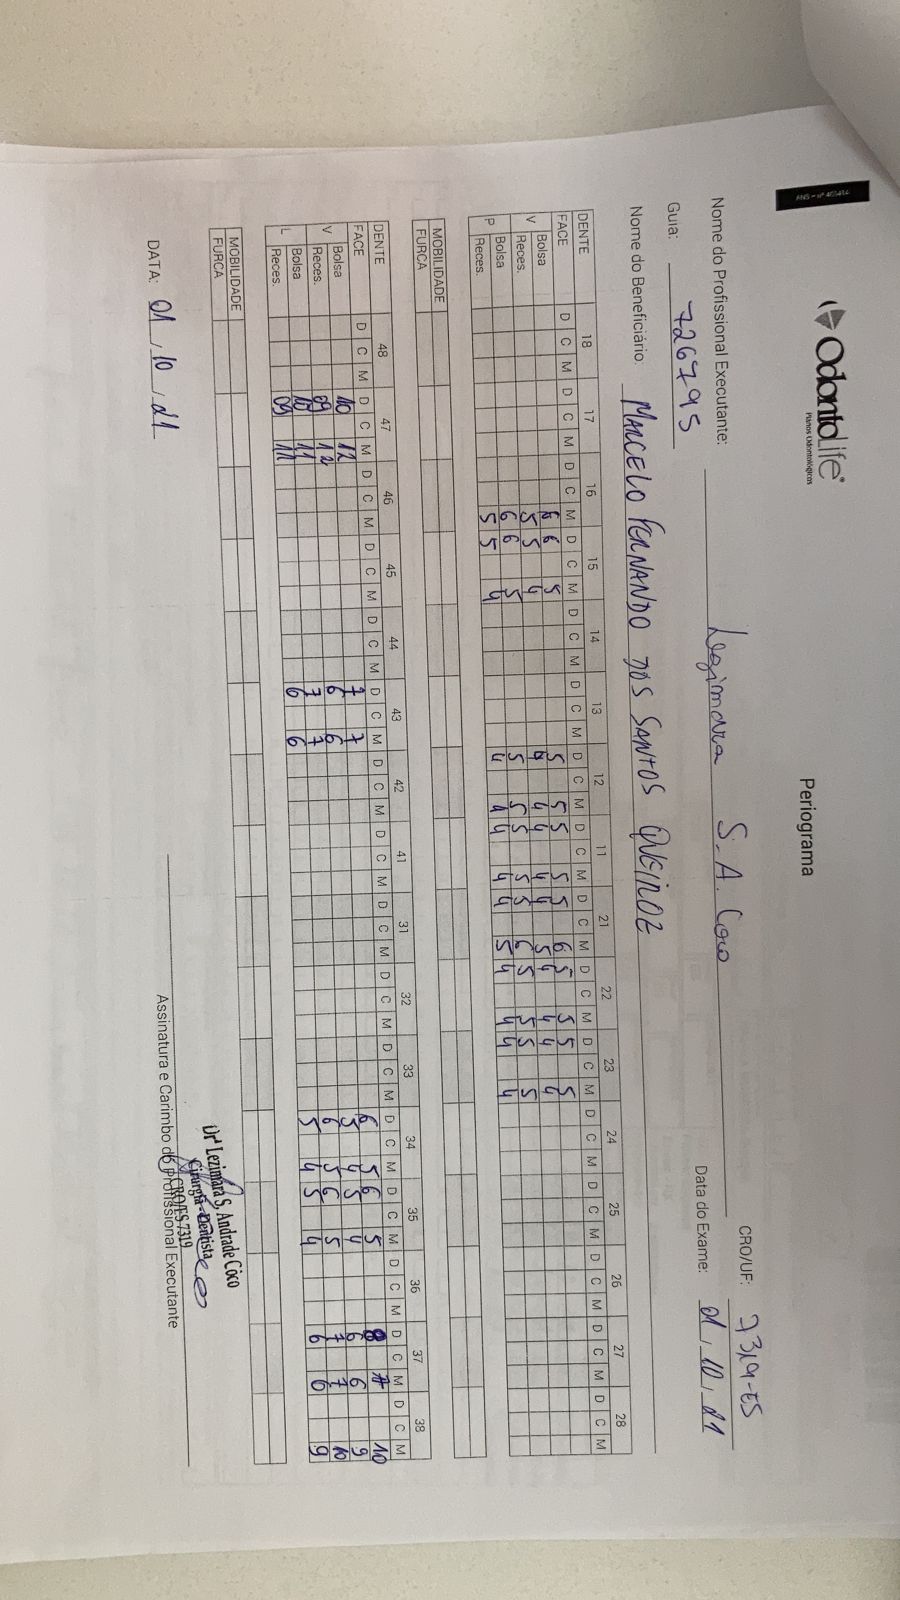 ANS - nº 403414
OdontoLife®
Planos Odontológicos
Periograma
Nome do Profissional Executante: Lezimara S. A. Coco CRO/UF: 7319-ES
Guia: 726795 Data do Exame: 01/10/21
Nome do Beneficiário: MARCELO FERNANDO DOS SANTOS QUEIROZ
DENTE 18 17 16 15 14 13 12 11 21 22 23 24 25 26 27 28
FACE D C M D C M D C M D C M D C M D C M D C M D C M D C M D C M D C M D C M D C M D C M D C M D C M
V Bolsa 6 6 5 5 5 5 5 5 6 5 5 5 5
Reces. 5 5 4 4 4 4 4 4 5 4 4 4 4
P Bolsa 6 6 5 5 5 5 5 5 6 5 5 5 5
Reces. 5 5 4 4 4 4 4 4 5 4 4 4 4
MOBILIDADE
FURCA
DENTE 48 47 46 45 44 43 42 41 31 32 33 34 35 36 37 38
FACE D C M D C M D C M D C M D C M D C M D C M D C M D C M D C M D C M D C M D C M D C M D C M D C M
V Bolsa 10 12 7 7 6 5 6 5 8 10
Reces. 09 12 6 6 5 4 5 4 6 6 9
L Bolsa 10 11 7 7 6 5 6 5 7 7 10
Reces. 09 11 6 6 5 4 5 4 6 6 9
MOBILIDADE
FURCA
DATA: 01/10/21
Drª Lezimara S. Andrade Côco
Cirurgiã-Dentista
CRO/ES 7319
Assinatura e Carimbo do Profissional Executante